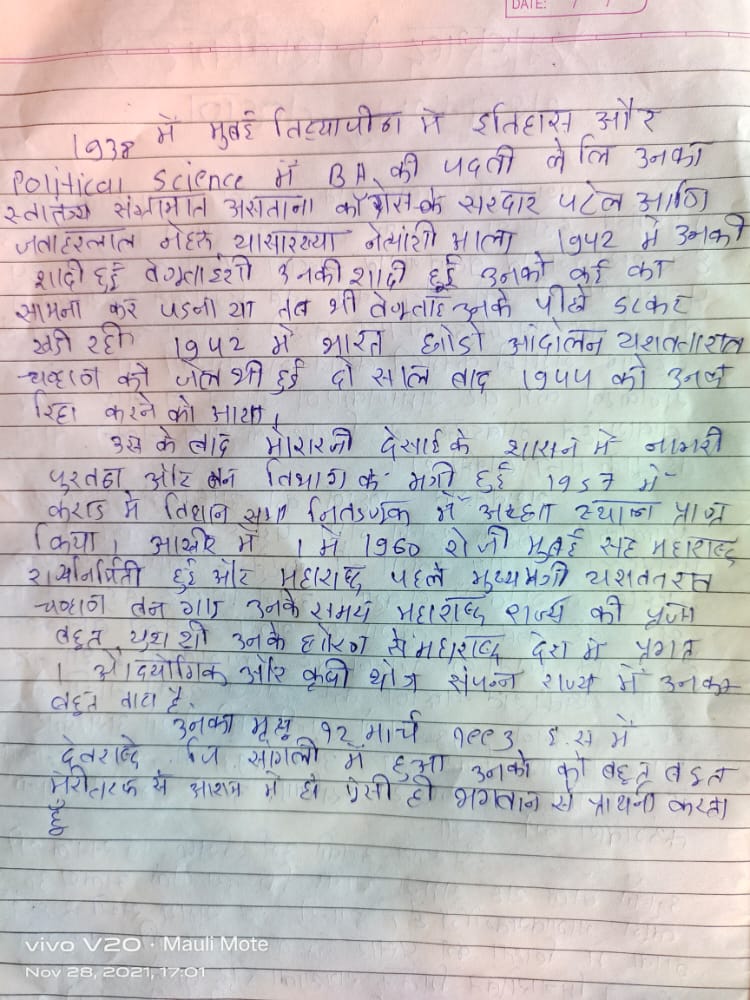 DATE: / /
1938 में मुबई विद्यापीठ में इतिहास और
Political Science में BA की पदवी ले लि उनका
स्वातंत्र्य संग्रामात असताना काँग्रेस के सरदार पटेल आणि
जवाहरलाल नेहरू यासारख्या नेत्यांशी आला 1942 में उनकी
शादी हुई वेणुताईशी उनकी शादी हुई उनको कई का
सामना कर पडना था तब भी वेणूताई उनके पीछे डटकर
खडी रही 1942 में भारत छोडो आंदोलन यशवंतराव
चव्हाण को जेल भी हुई दो साल बाद 1944 को उनको
रिहा करने को आया।
उस के बाद मोरारजी देसाई के शासन में नागरी
पुरवठा और वन विभाग के मंत्री हुई 1957 में
कराड में विधान सभा में अच्छा स्थान प्राप्त
किया। आखीर में 1 में 1960 रोजी मुबई सह महाराष्ट्र
राज्यनिर्मिती हुई और महाराष्ट्र पहले मुख्यमंत्री यशवंतराव
चव्हाण बन गए उनके समय महाराष्ट्र राज्य की
बहुत यशस्वी उनके धोरण से महाराष्ट्र देश में प्रगत
। औदयोगिक और कृषी संपन्न राज्य में उनका
बहुत वाटा है.
उनका मृत्यू १२ मार्च १९९३ इ.स में
देवराष्ट्रे जि सांगली में हुआ उनको को बहुत बहुत
मेरी तरफ से में हो ऐसी ही भगवान से प्राथना करता
हुँ
vivo V20 · Mauli Mote
Nov 28, 2021, 17:01